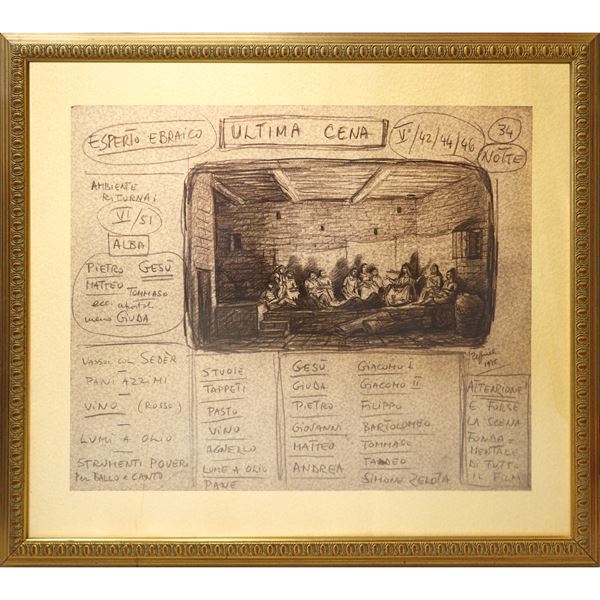 ESPERTO EBRAICO
ULTIMA CENA
V°/42/44/46
34
NOTTE
AMBIENTE
RITORNA:
VI/51
ALBA
PIETRO GESÙ
MATTEO TOMMASO
ecc. apostoli
meno GIUDA
VASSOI COL SEDÈR
PANI AZZIMI
VINO (ROSSO)
LUMI A OLIO
STRUMENTI POVERI
PER BALLO E CANTO
STUOIE
TAPPETI
PASTO
VINO
AGNELLO
LUME A OLIO
PANE
GESÙ
GIUDA
PIETRO
GIOVANNI
MATTEO
ANDREA
GIACOMO I
GIACOMO II
FILIPPO
BARTOLOMEO
TOMMASO
TADDEO
SIMONE ZELOTA
1975
ATTENZIONE!
E' FORSE
LA SCENA
FONDA=
MENTALE
DI TUTTO
IL FILM